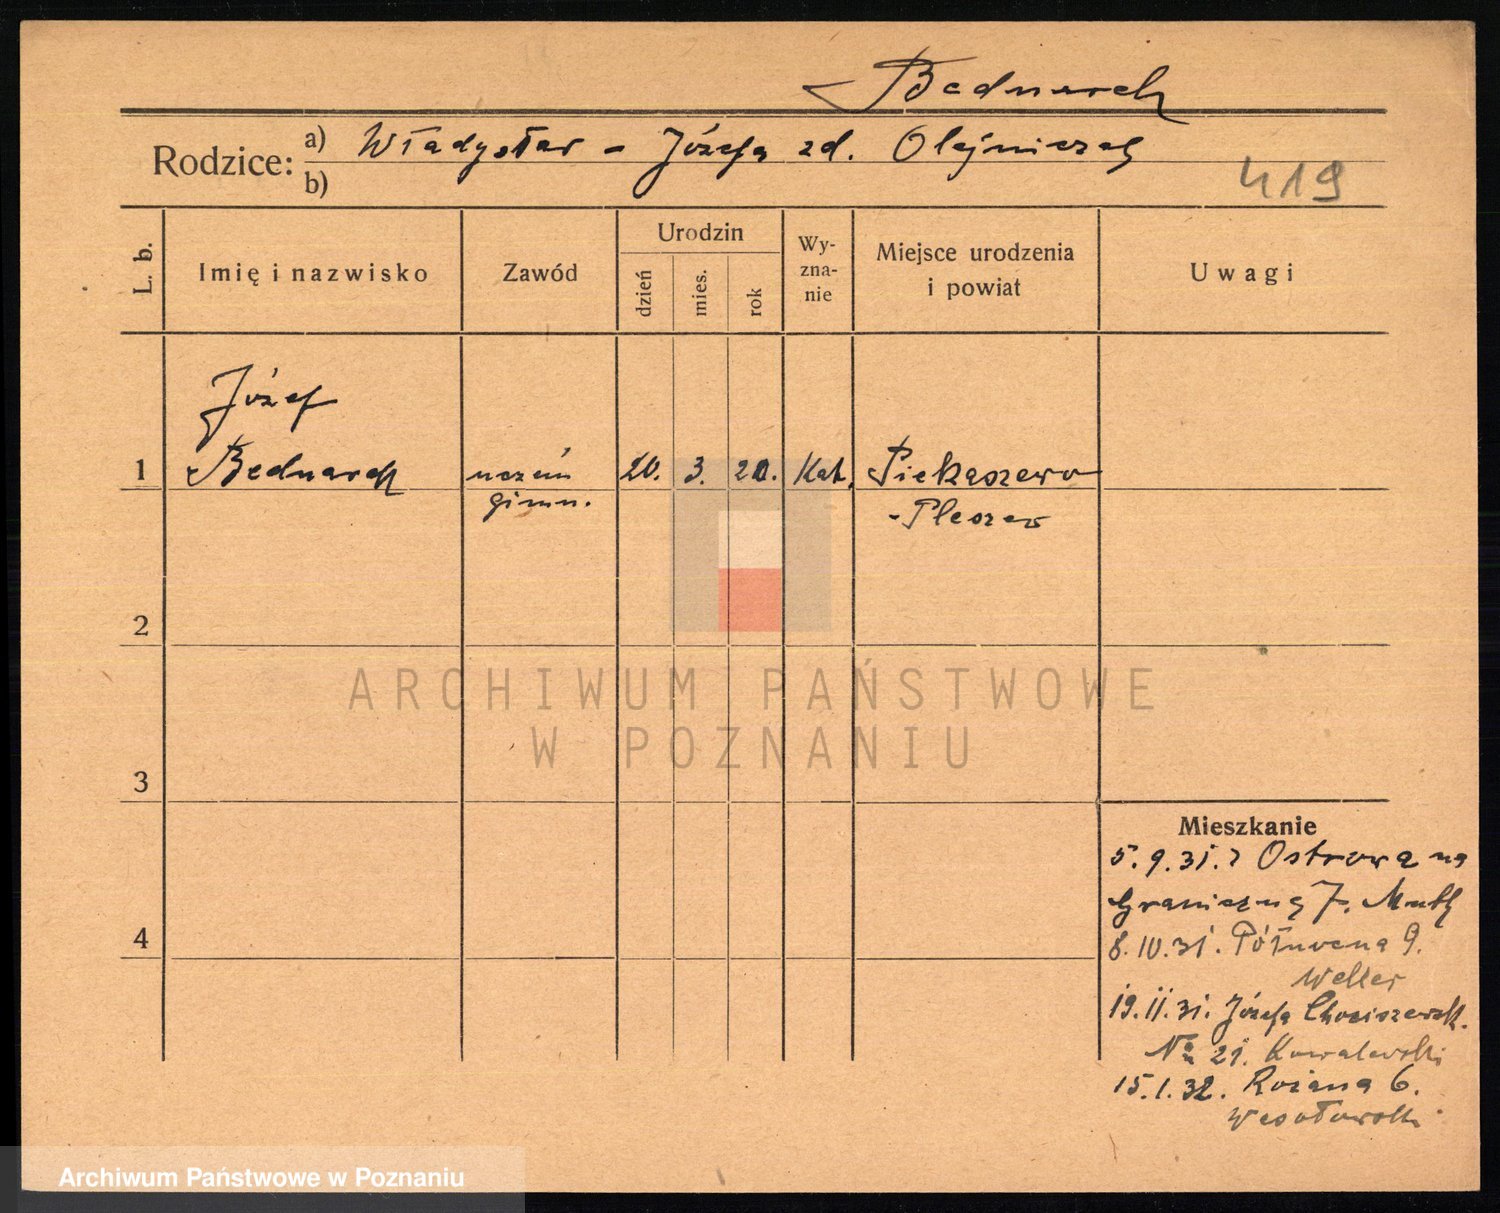 Bednarek
Rodzice: a) Władysław - Józefa zd. Olejniczak
b)
419
L. b.
Imię i nazwisko
Zawód
Urodzin
dzień
mies.
rok
Wy-
zna-
nie
Miejsce urodzenia
i powiat
Uwagi
Józef
1 Bednarek uczeń 20. 3. 20. Kat. Piekaszewo
gimn. - Pleszew
2
3
4
ARCHIWUM PAŃSTWOWE
W POZNANIU
Mieszkanie
5.9.31. z Ostrowa na
Graniczną 7.
8.10.31. 9.
Weller
19.11.31. Józefa Chociszewsk.
No 21. Kowalewski
15.1.32. Różana 6.
Wesołowski
Archiwum Państwowe w Poznaniu